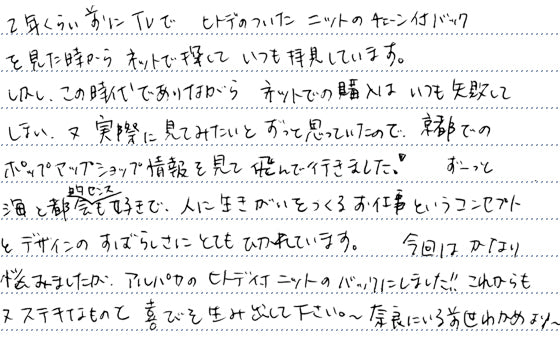 ２年くらい前にTVで ヒトデのついた ニットの チェーン付バック
を見た時から ネットで探して いつも拝見しています。
しかし、この時代でありながら ネットでの購入は いつも失敗して
しまい、又 実際に見てみたいと ずっと思っていたので、京都での
ポップアップショップ情報を見て 飛んで行きました！ ずーっと
海と都会的センスも好きで、人に生きがいをつくるお仕事というコンセプト
とデザインのすばらしさにとてもひかれています。 今回は かなり
悩みましたが、アルパカの ヒトデ付ニットの バックにしました!! これからも
又ステキなものと 喜びを生み出して下さい。〜 奈良にいる